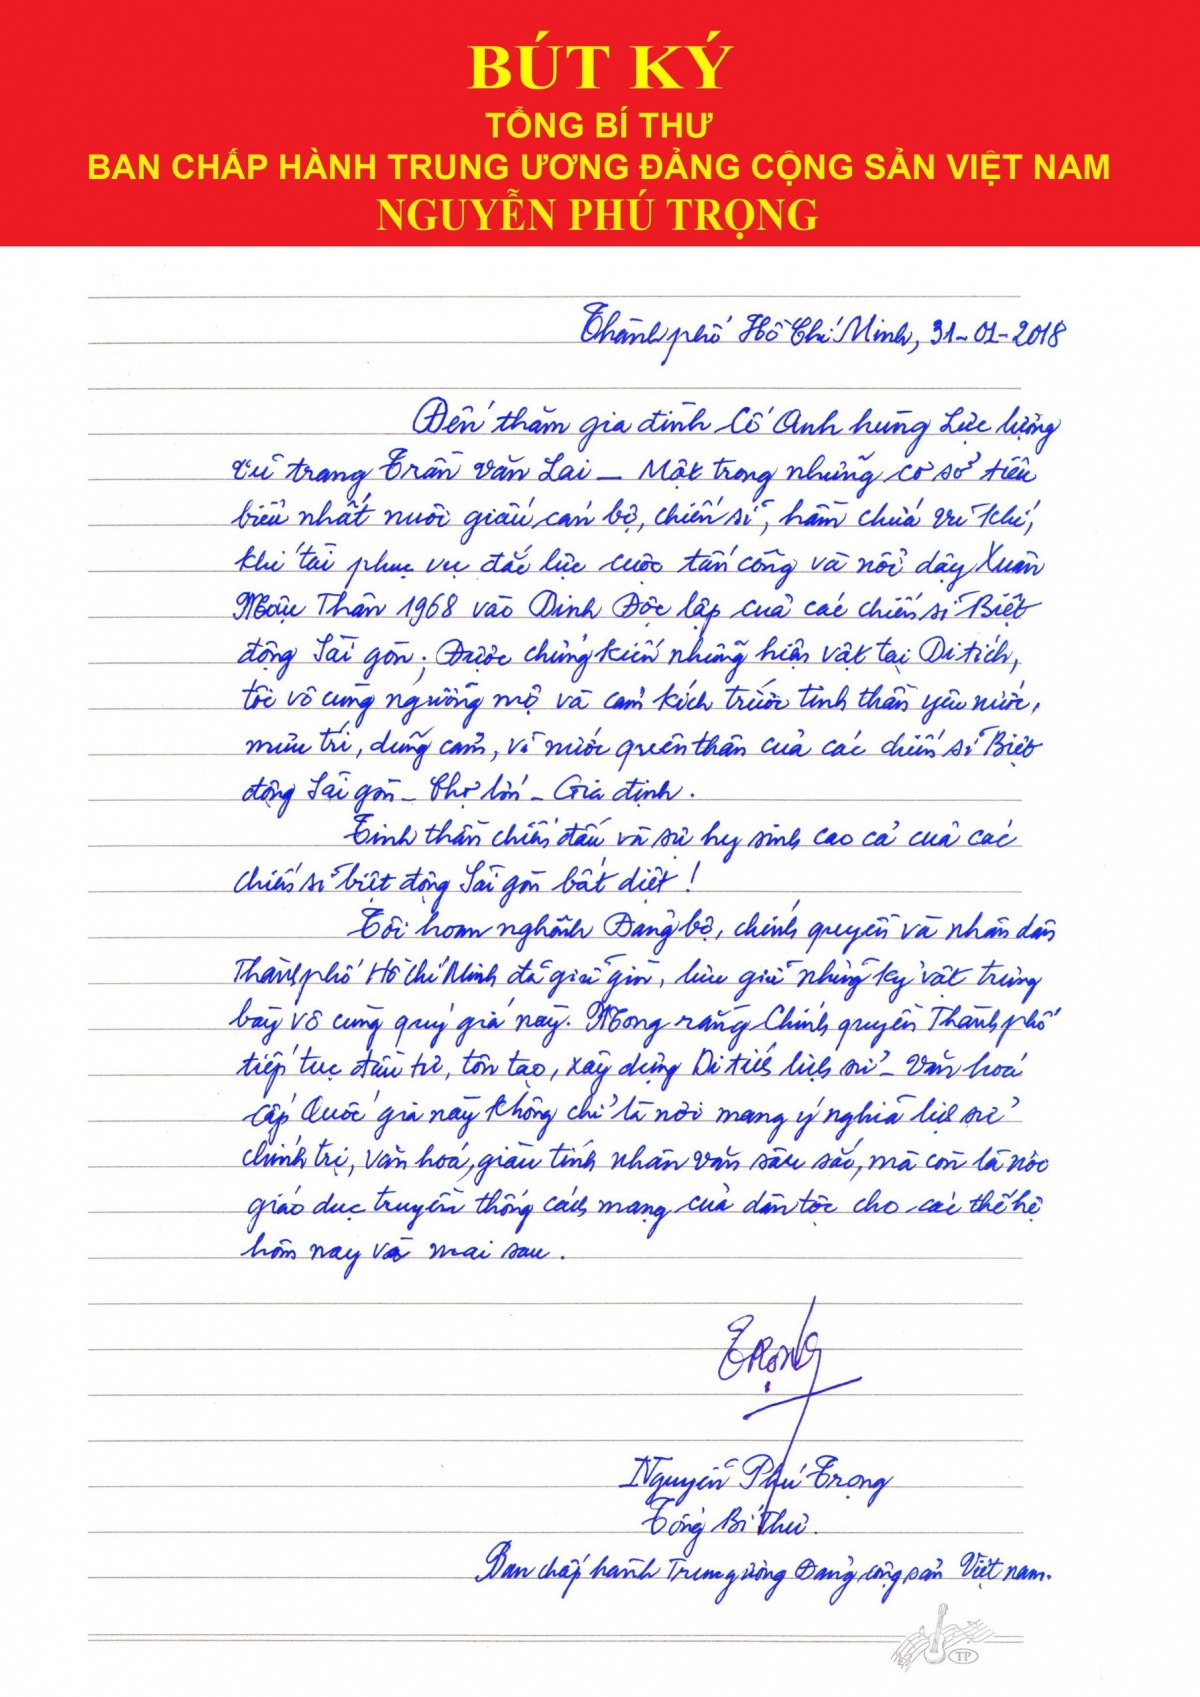 BÚT KÝ
TỔNG BÍ THƯ
BAN CHẤP HÀNH TRUNG ƯƠNG ĐẢNG CỘNG SẢN VIỆT NAM
NGUYỄN PHÚ TRỌNG
Thành phố Hồ Chí Minh, 31-01-2018
Đến thăm gia đình Cố Anh hùng Lực lượng
vũ trang Trần Văn Lai – Một trong những cơ sở tiêu
biểu nhất nuôi giấu cán bộ, chiến sĩ, hầm chứa vũ khí,
khí tài phục vụ đắc lực cuộc tấn công và nổi dậy Xuân
Mậu Thân 1968 vào Dinh Độc lập của các chiến sĩ Biệt
động Sài gòn; Được chứng kiến những hiện vật tại Di tích,
tôi vô cùng ngưỡng mộ và cảm kích trước tinh thần yêu nước,
mưu trí, dũng cảm, vì nước quên thân của các chiến sĩ Biệt
động Sài gòn – Chợ lớn – Gia định.
Tinh thần chiến đấu và sự hy sinh cao cả của các
chiến sĩ biệt động Sài gòn bất diệt!
Tôi hoan nghênh Đảng bộ, chính quyền và nhân dân
Thành phố Hồ Chí Minh đã giữ gìn, lưu giữ những kỷ vật trưng
bày vô cùng quý giá này. Mong rằng Chính quyền Thành phố
tiếp tục đầu tư, tôn tạo, xây dựng Di tích lịch sử – Văn hoá
cấp Quốc gia này không chỉ là nơi mang ý nghĩa lịch sử
chính trị, văn hoá, giàu tính nhân văn sâu sắc, mà còn là nơi
giáo dục truyền thống cách mạng của dân tộc cho các thế hệ
hôm nay và mai sau.
Trọng
Nguyễn Phú Trọng
Tổng Bí Thư.
Ban chấp hành Trung ương Đảng cộng sản Việt nam.
TP